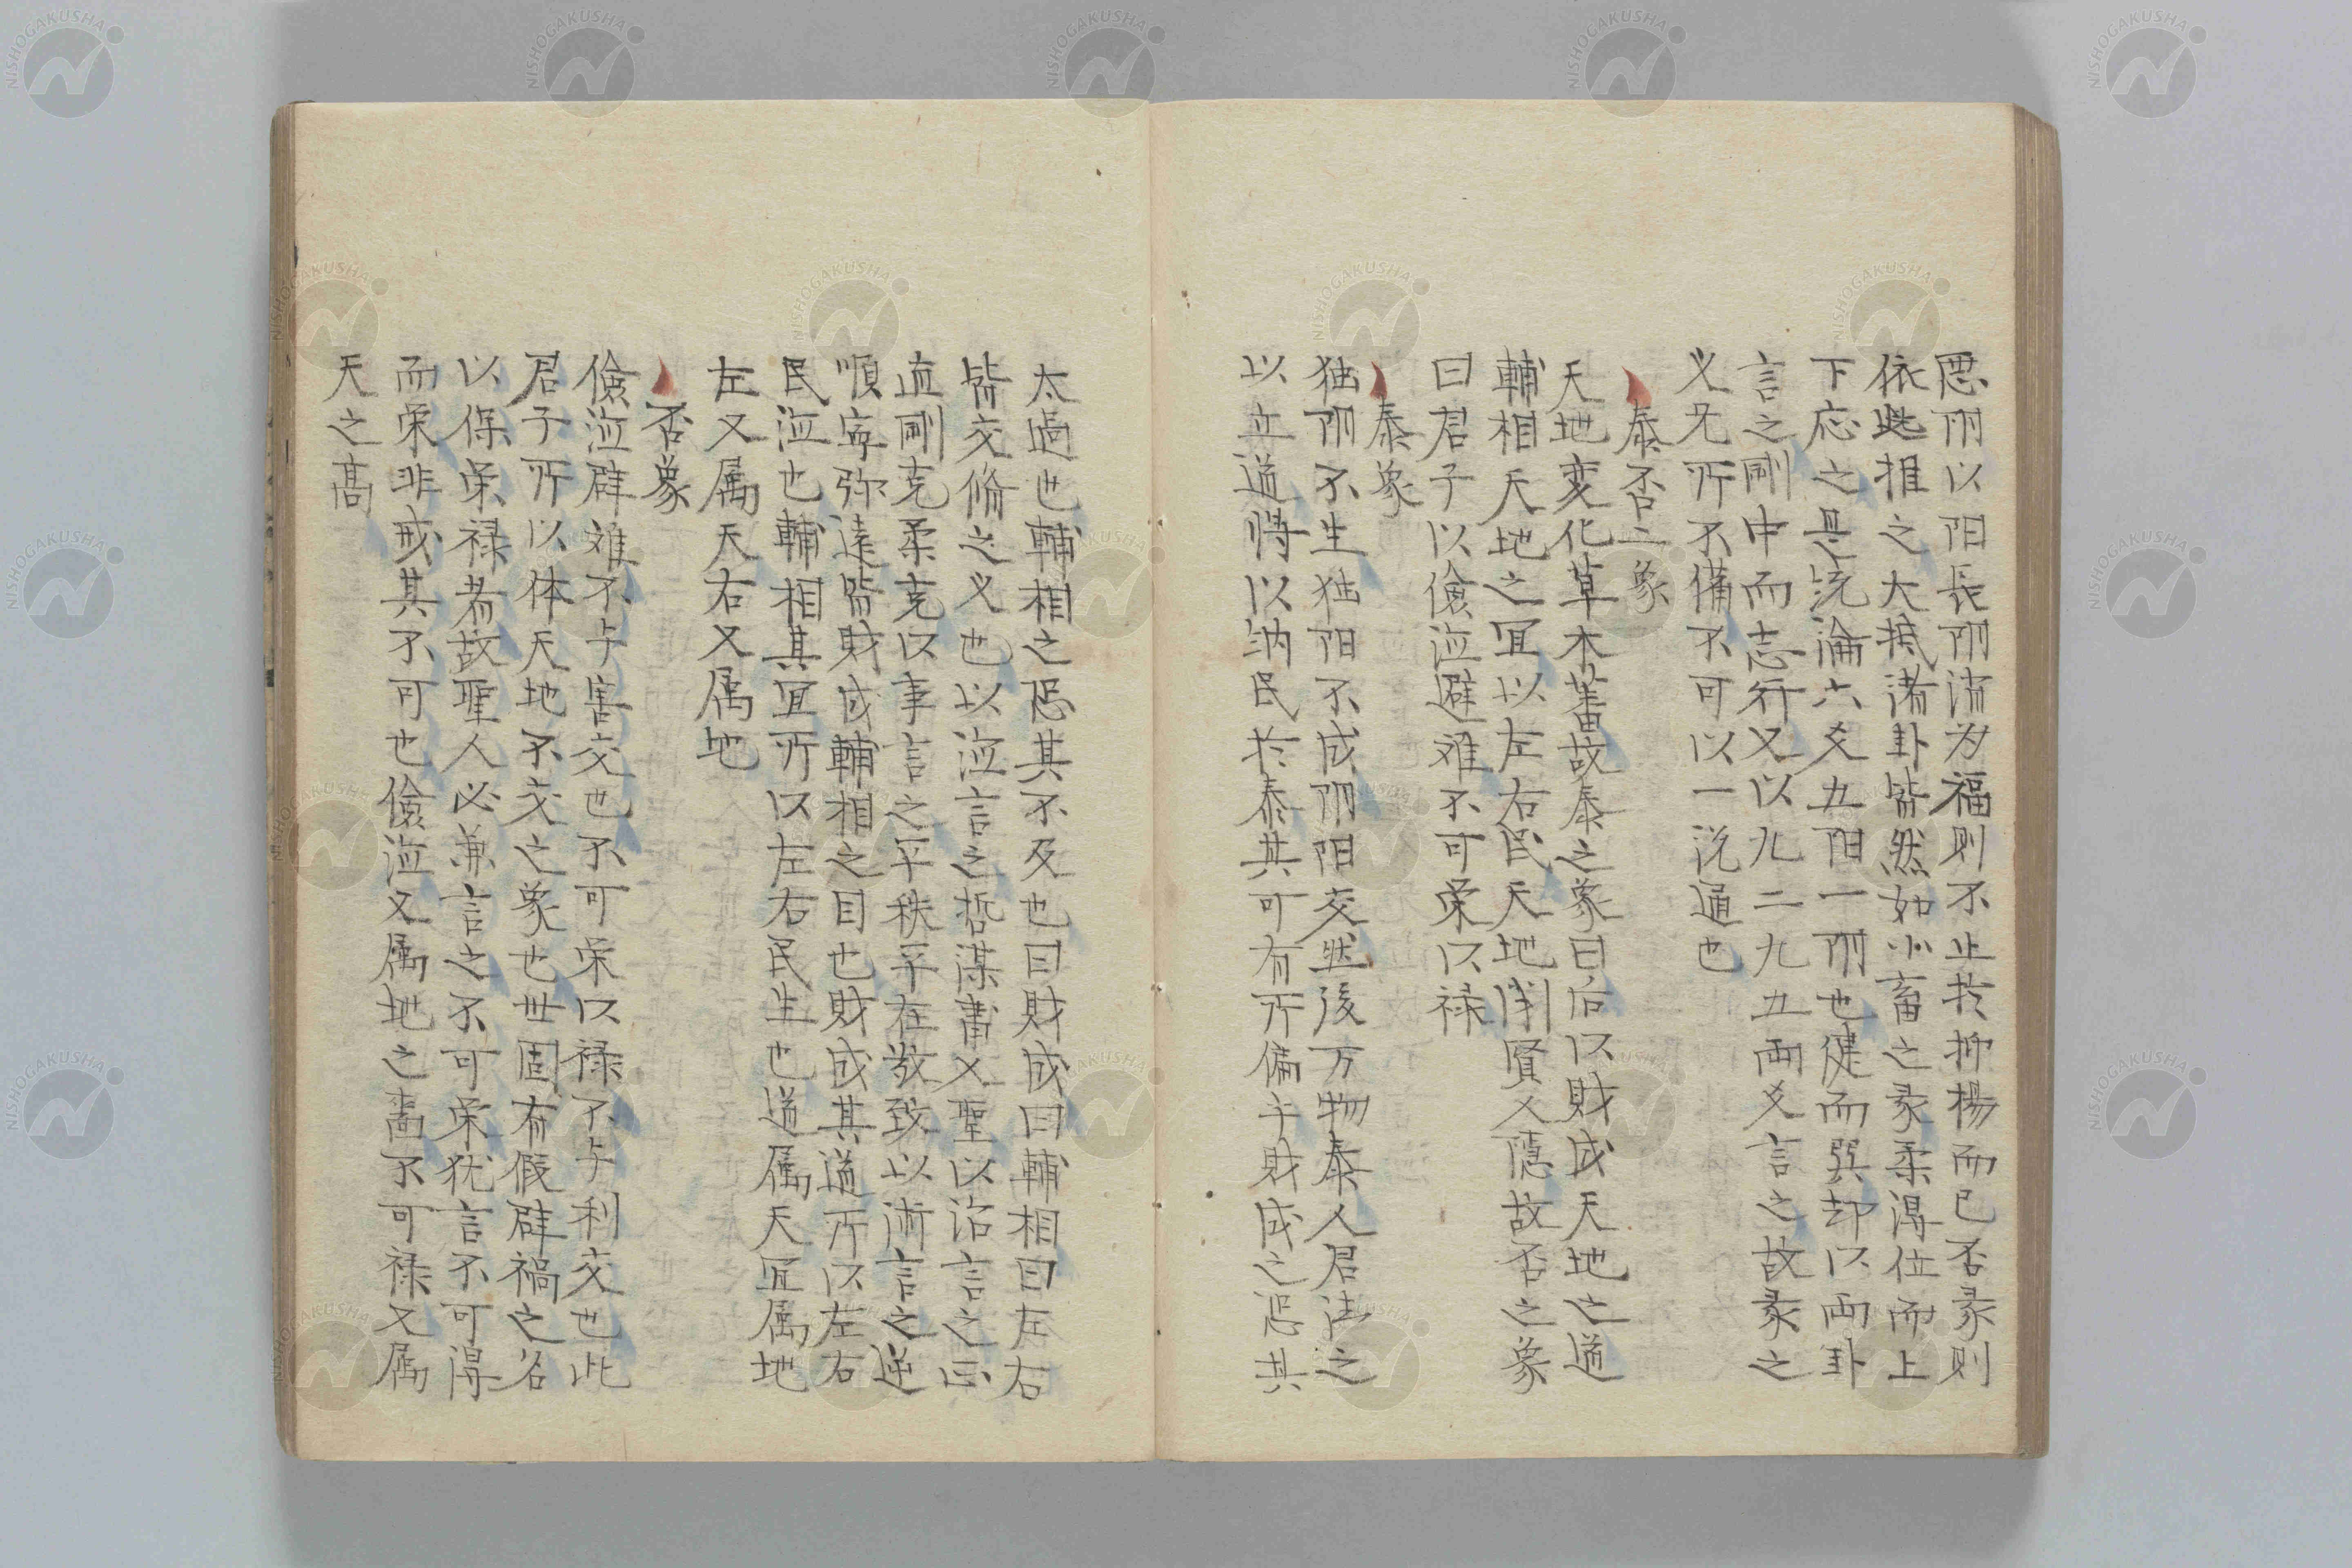 恶阴以阳長阴消为福則不止於抑揚而已否彖則
依此推之大抵諸卦皆然如小畜之彖柔淂位而上
下応之是汎論六爻五阳一阴也健而巽却以両卦
言之剛中而志行又以九二九五両爻言之故彖之
义无所不備不可以一説通也
泰否二象
天地変化草木蕃故泰之象曰后以財成天地之道
輔相天地之冝以左右民天地閉賢人隠故否之象
曰君子以儉泣避难不可荣以禄
泰象
独阴不生独阳不成阴阳交然後万物泰人君法之
以立道将以納民於泰其可有所偏乎財成之恶其
太過也輔相之恶其不及也曰財成曰輔相曰左右
皆交脩之义也以泣言之哲謀肅乂聖以治言之正
直剛克柔克以事言之平秩平在敬致以術言之逆
順寍弥遠皆財成輔相之目也財成其道所以左右
民泣也輔相其冝所以左右民生也道属天冝属地
左又属天右又属地
否象
儉泣辟难不与害交也不可荣以禄不与利交也此
君子所以体天地不交之象也世固有假辟禍之名
以保荣禄者故聖人必兼言之不可荣犹言不可淂
而荣非戒其不可也儉泣又属地之嗇不可禄又属
天之高